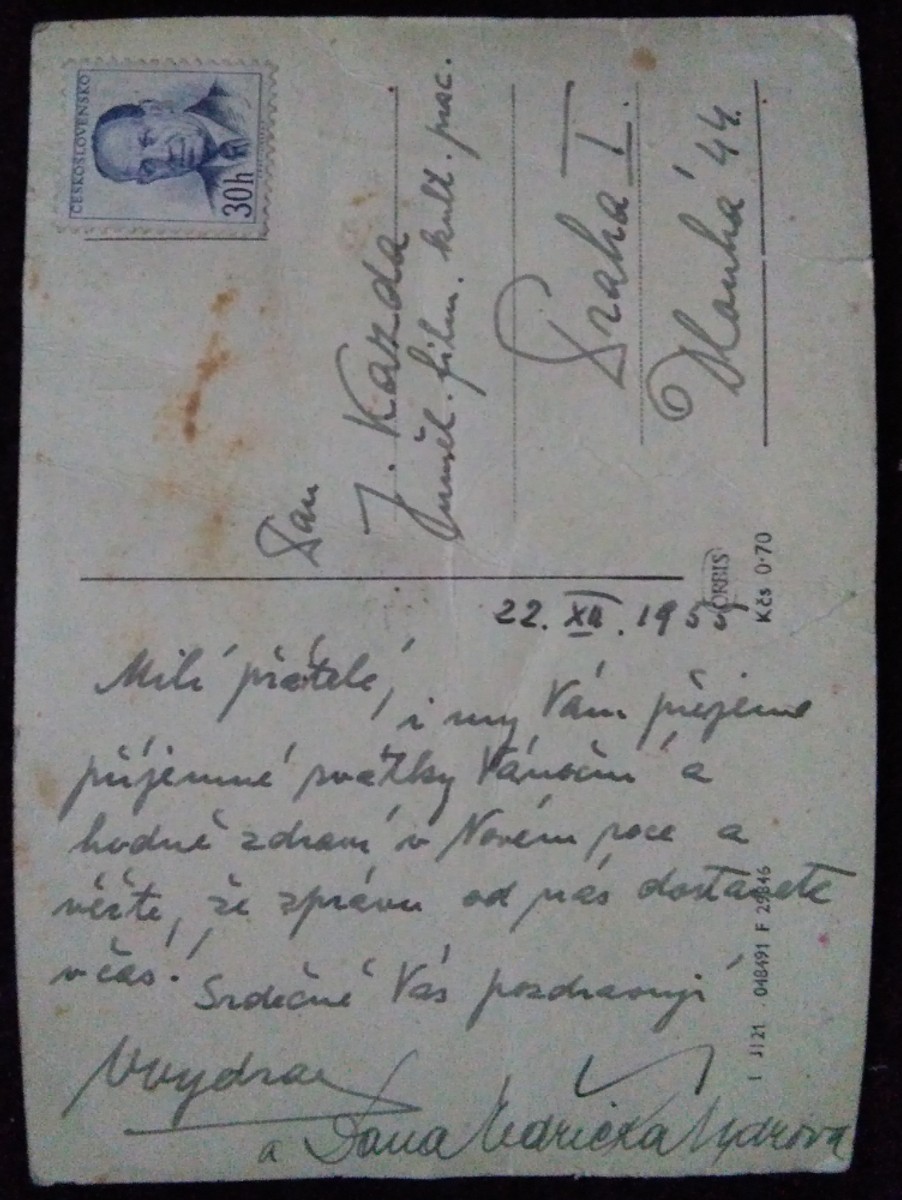 ČESKOSLOVENSKO
30h
Pan
J. Kazda
film. kult. prac.
Praha I.
Dlouhá 44.
ORBIS
Kčs 0·70
22. XII. 195
Milí přátelé,
i my Vám přejeme
příjemné svátky Vánoční a
hodně zdraví v Novém roce a
věřte, že zprávu od nás dostanete
včas!
Srdečně Vás pozdravují
VVydra
a Dana Medřická Vydrová